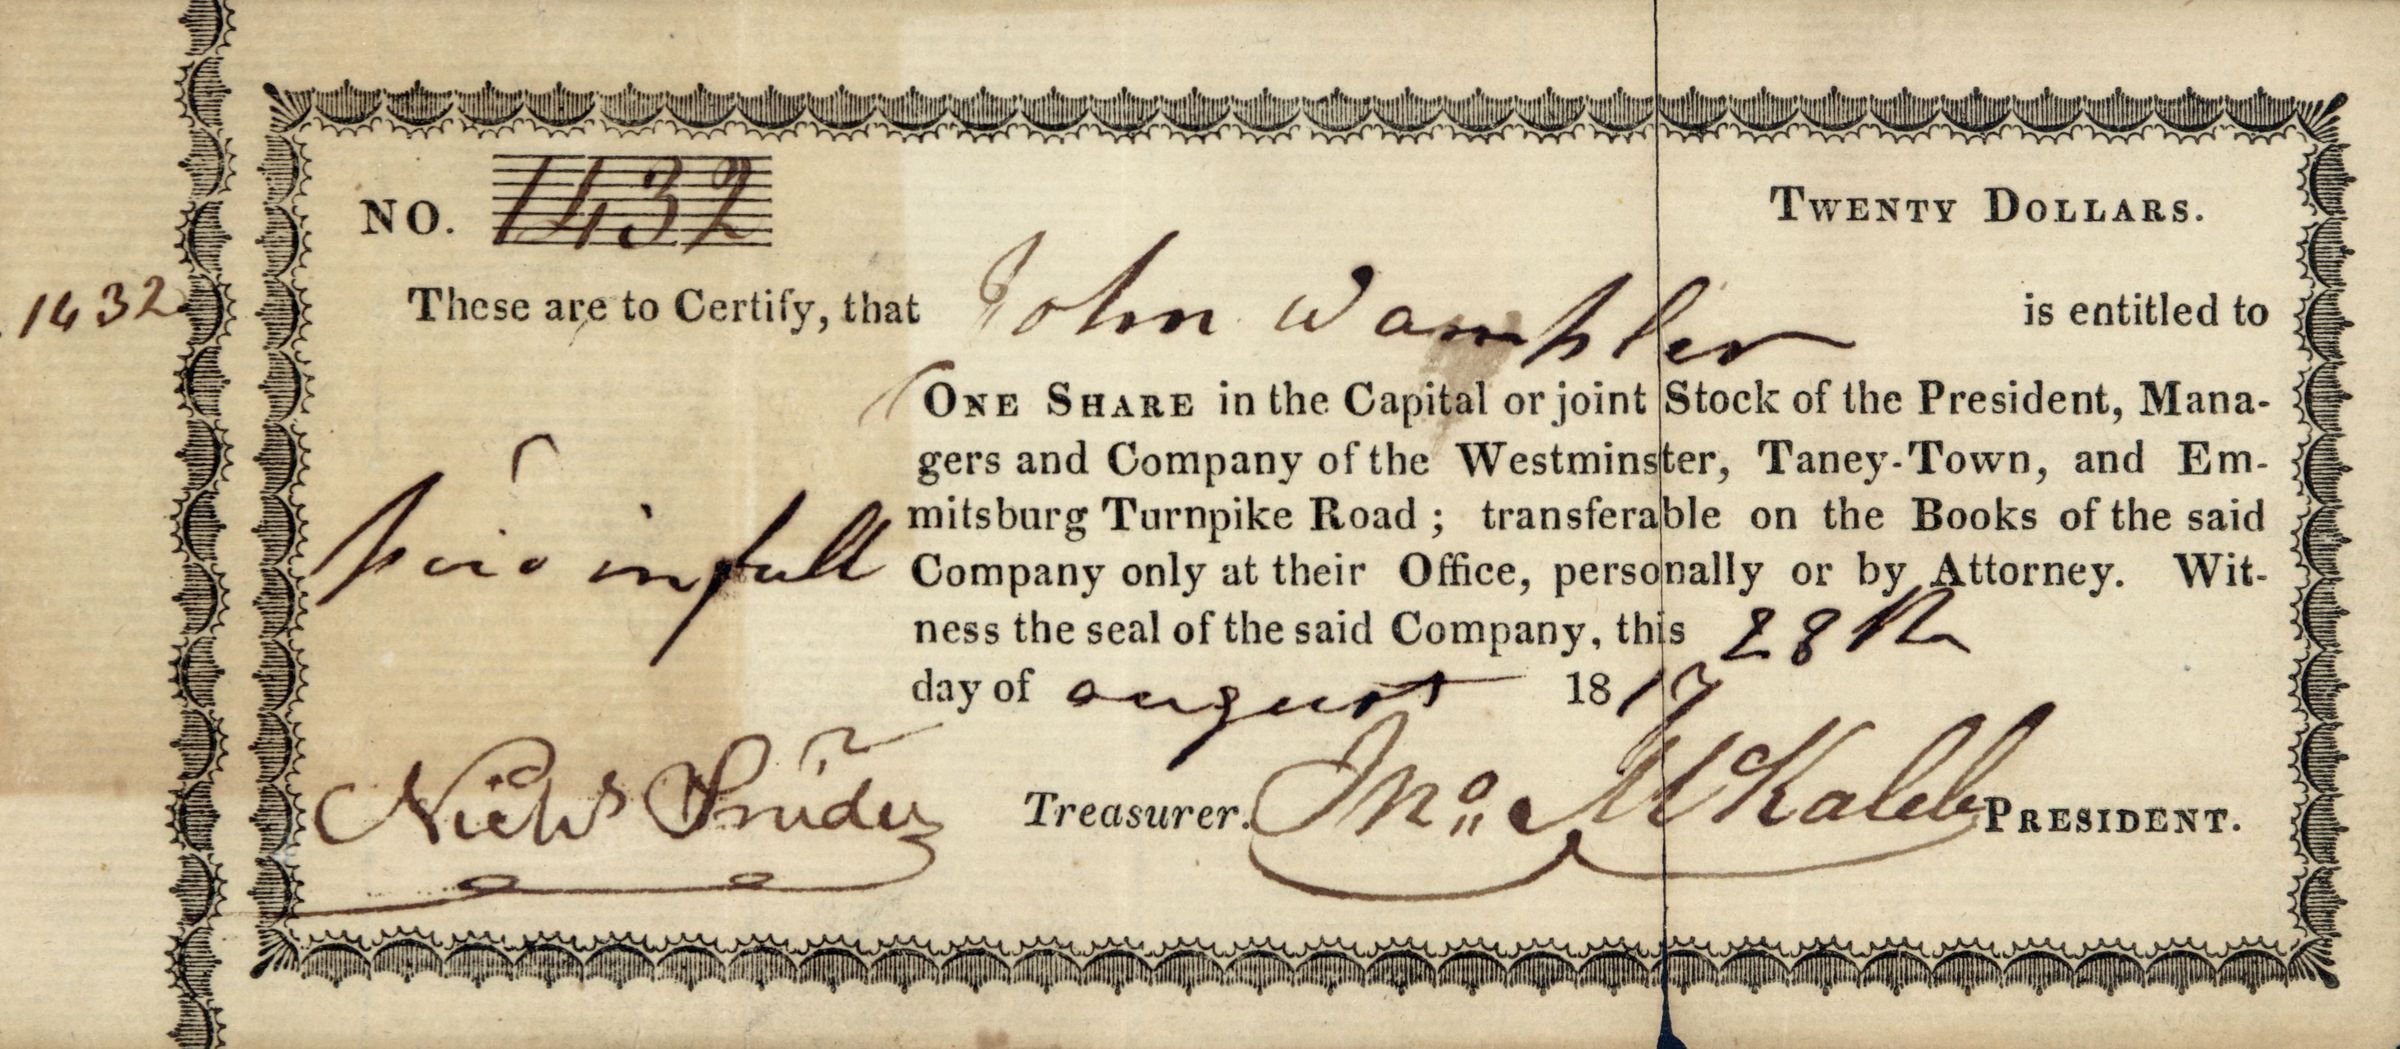 NO. 1432
TWENTY DOLLARS.
1432
These are to Certify, that John Wampler is entitled to
ONE SHARE in the Capital or joint Stock of the President, Mana-
gers and Company of the Westminster, Taney-Town, and Em-
mitsburg Turnpike Road ; transferable on the Books of the said
paid in full
Company only at their Office, personally or by Attorney. Wit-
ness the seal of the said Company, this 28th
day of august 1817
Nichs Snider Treasurer. Jno. McKaleb PRESIDENT.